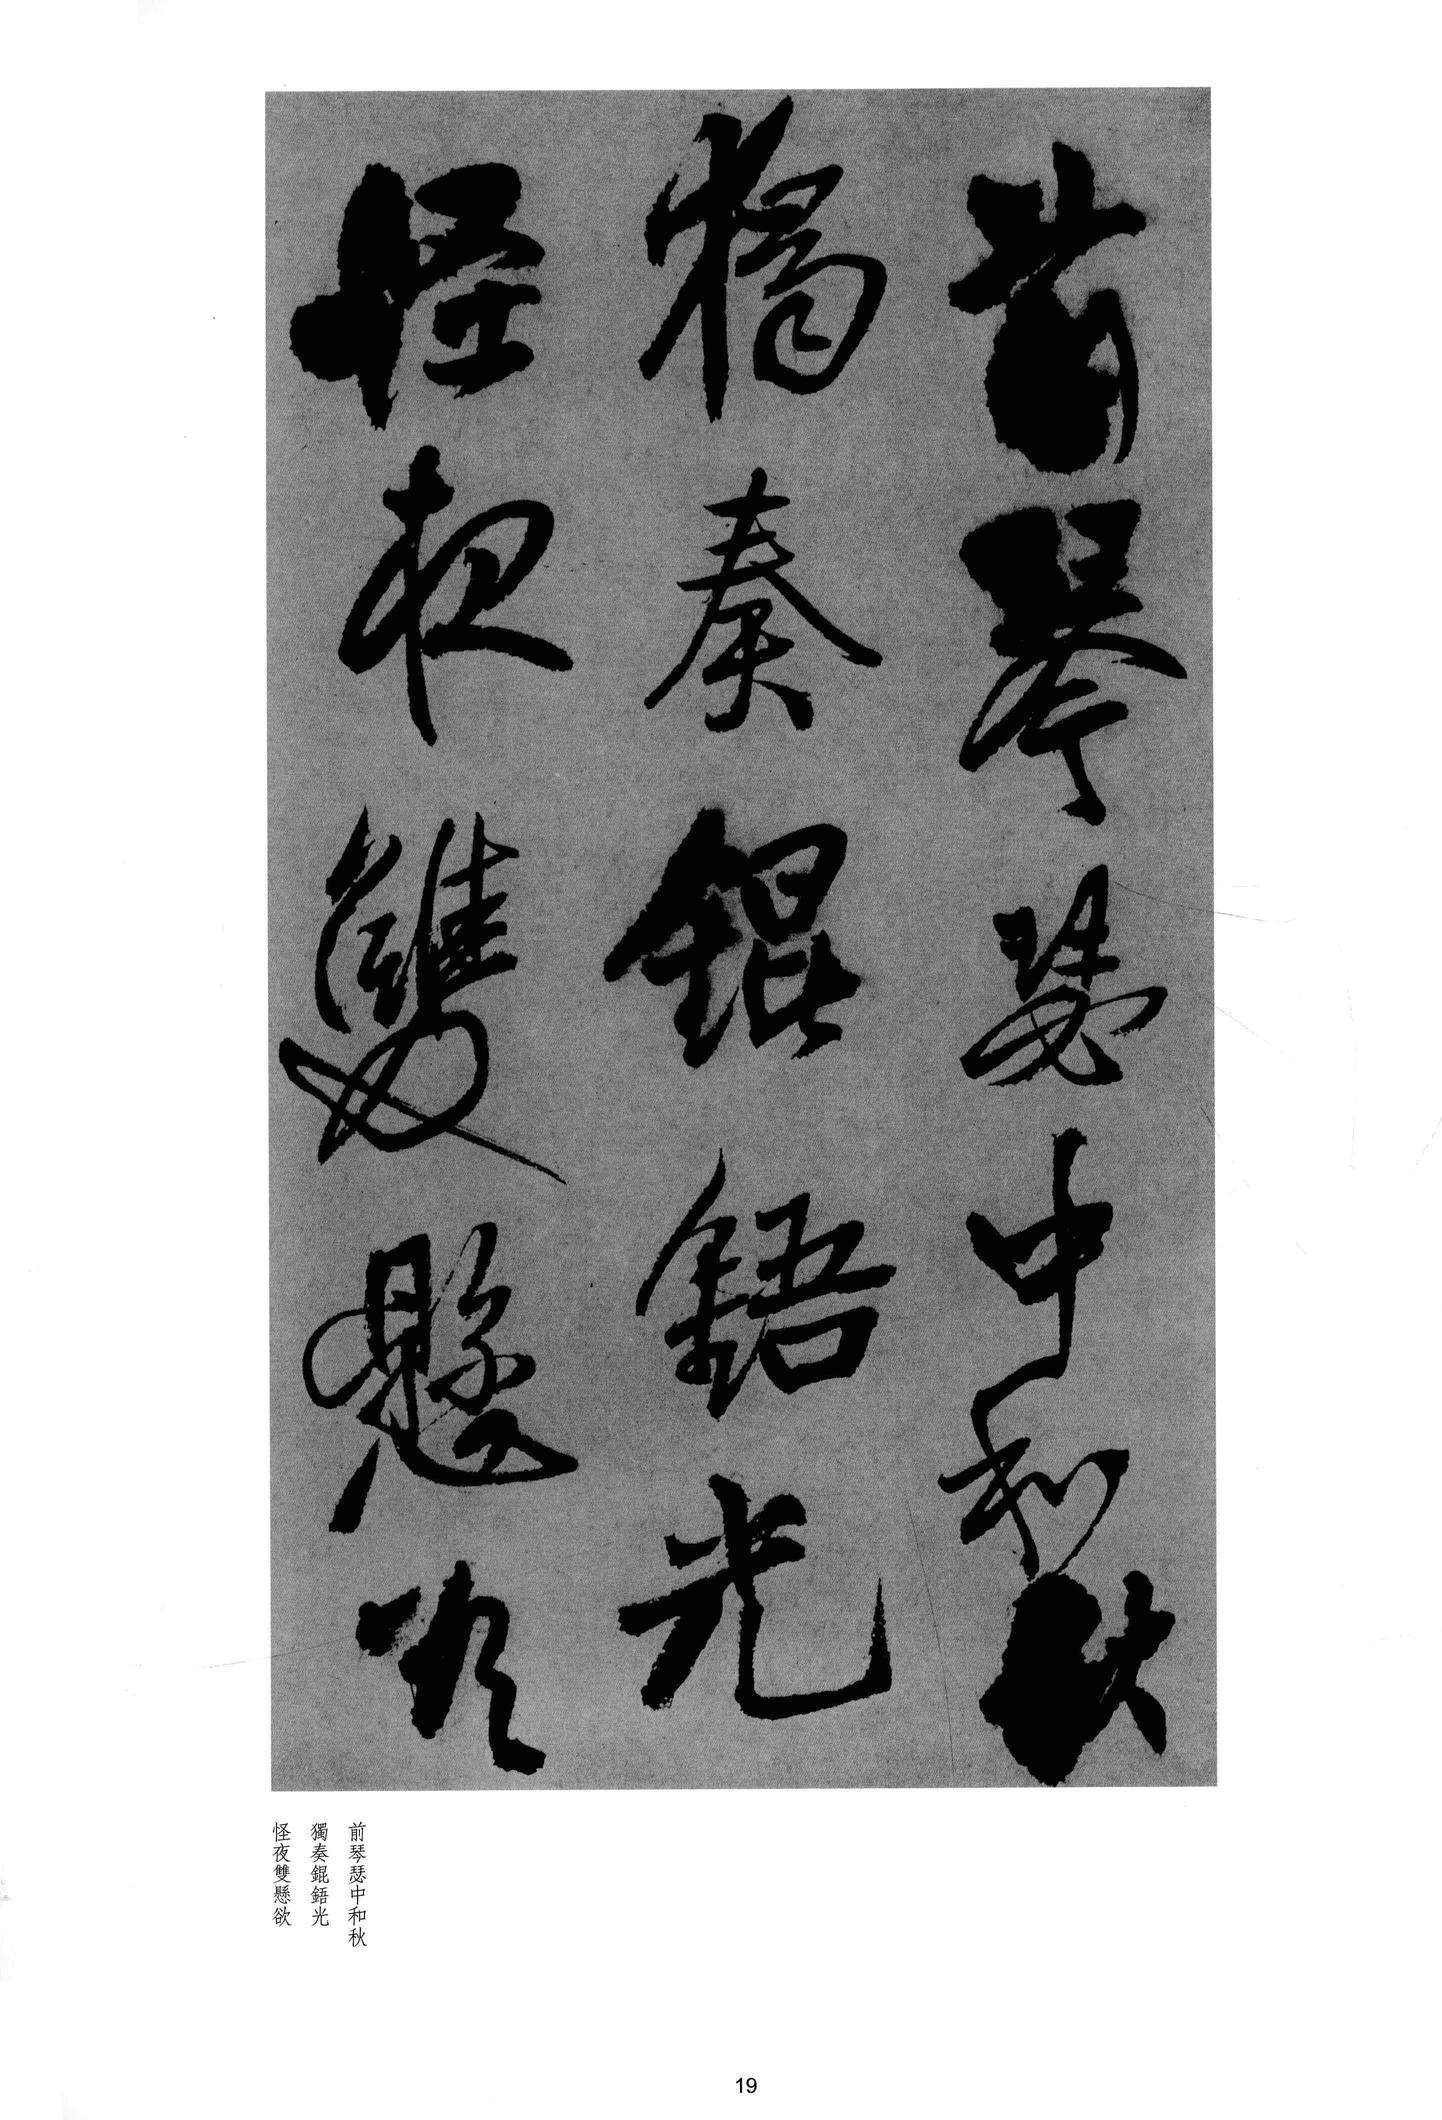 前琴瑟中和秋
獨奏錕鋙光
怪夜雙懸欲
前琴瑟中和秋
獨奏錕鋙光
怪夜雙懸欲
19